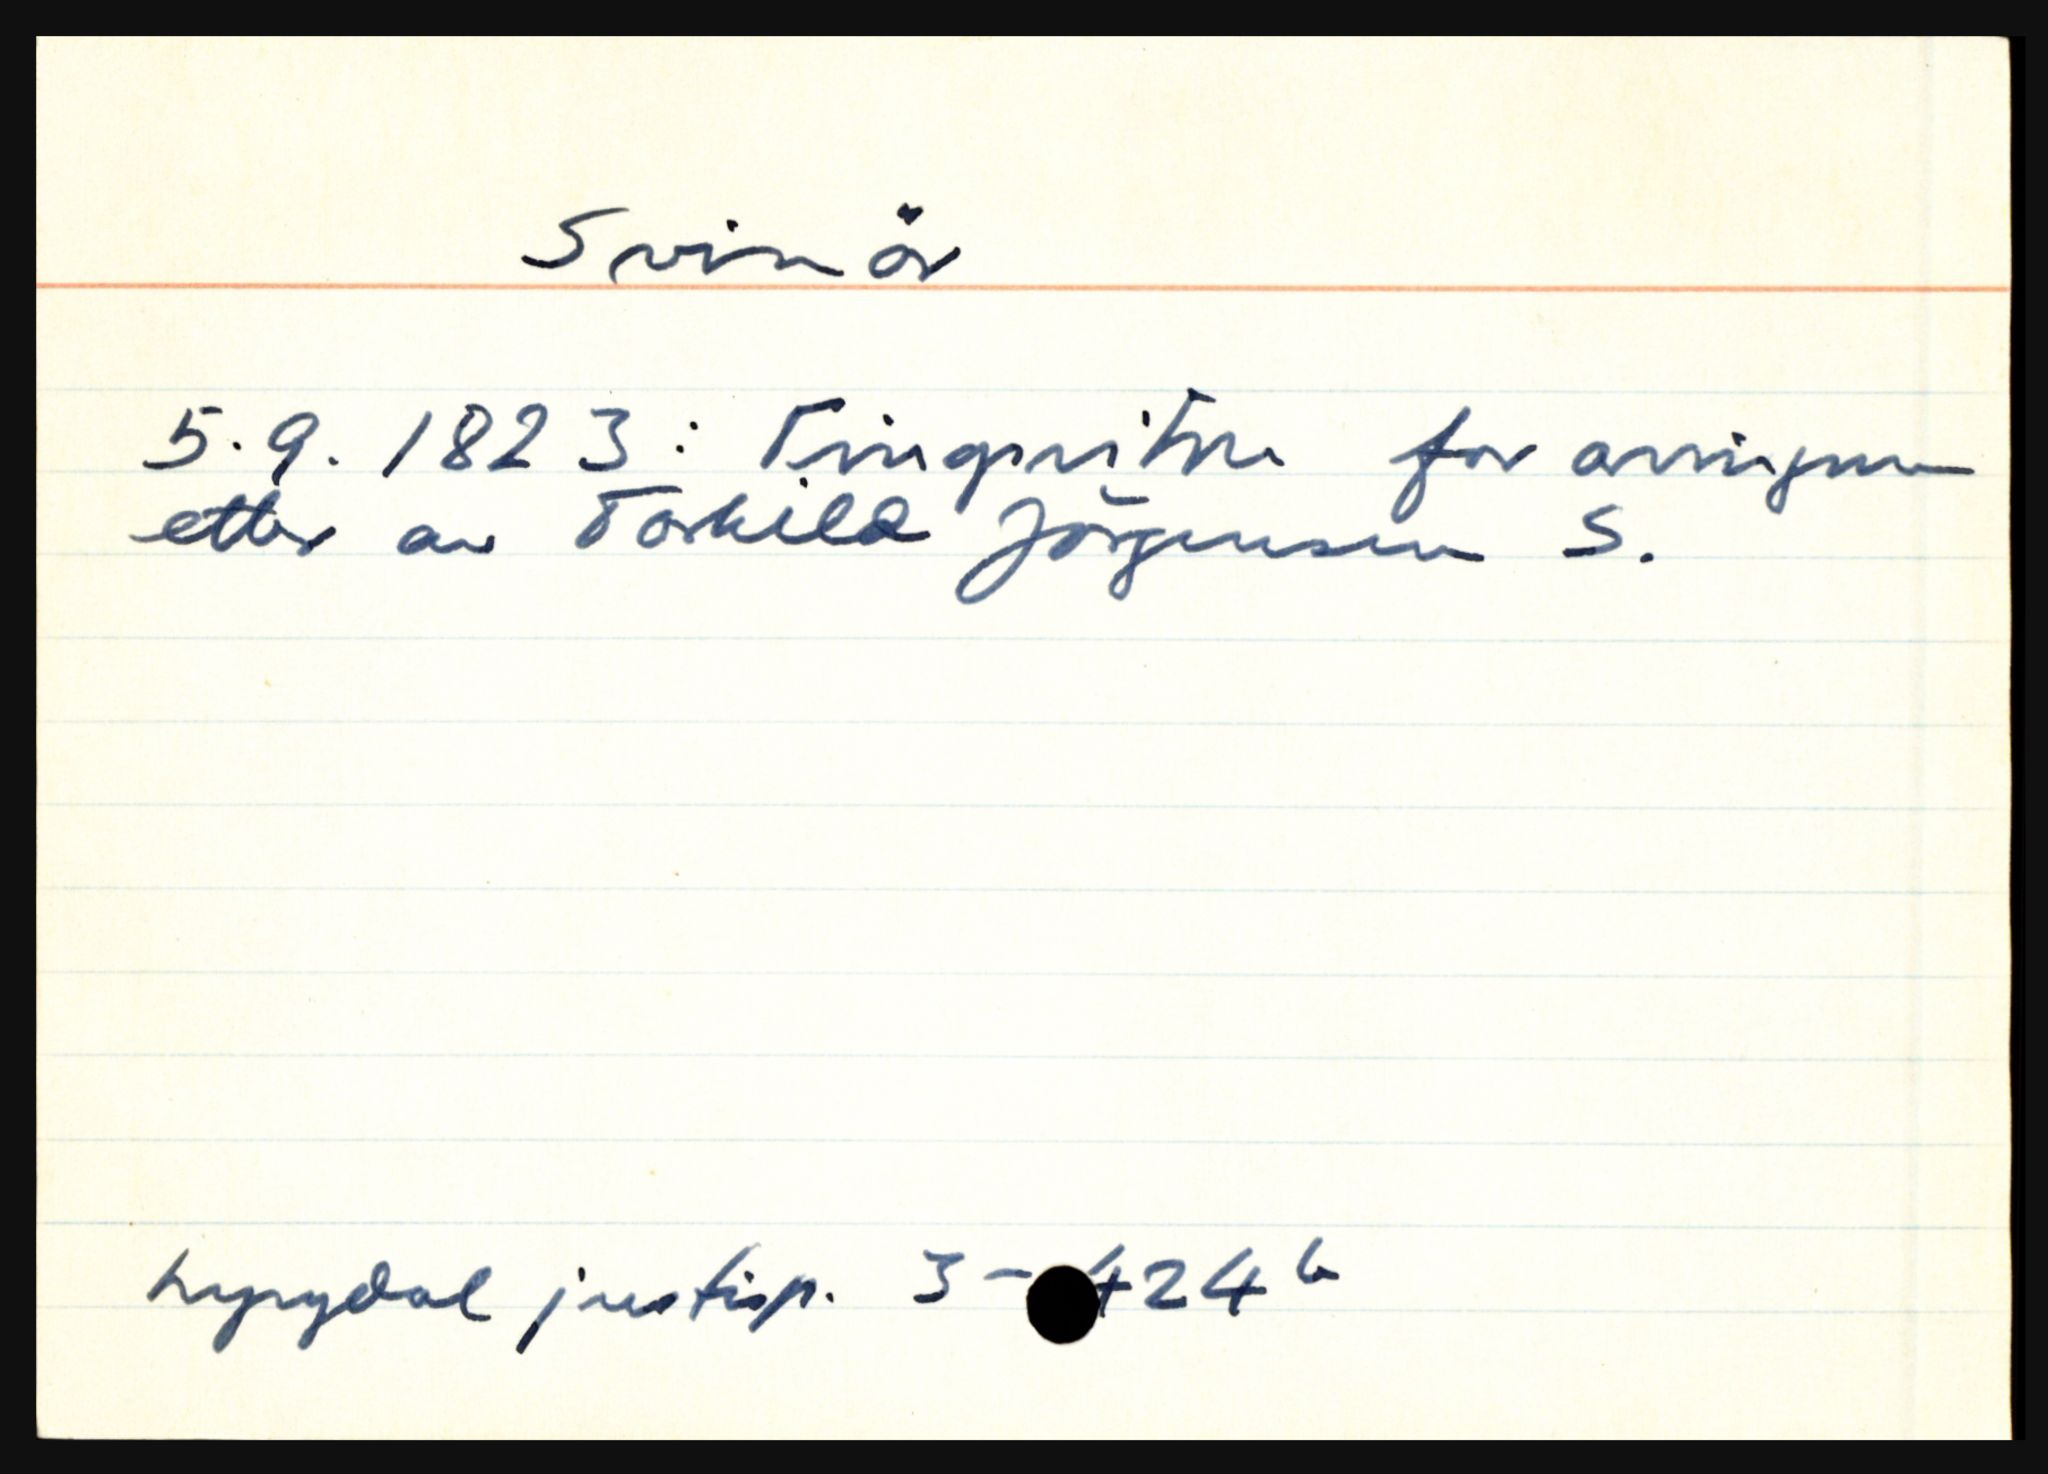 Svinör
5.9.1823: Tingsvitne for arvingene
etter av Torkild Jörgensen S.
Lyngdal justisp. 3-424b